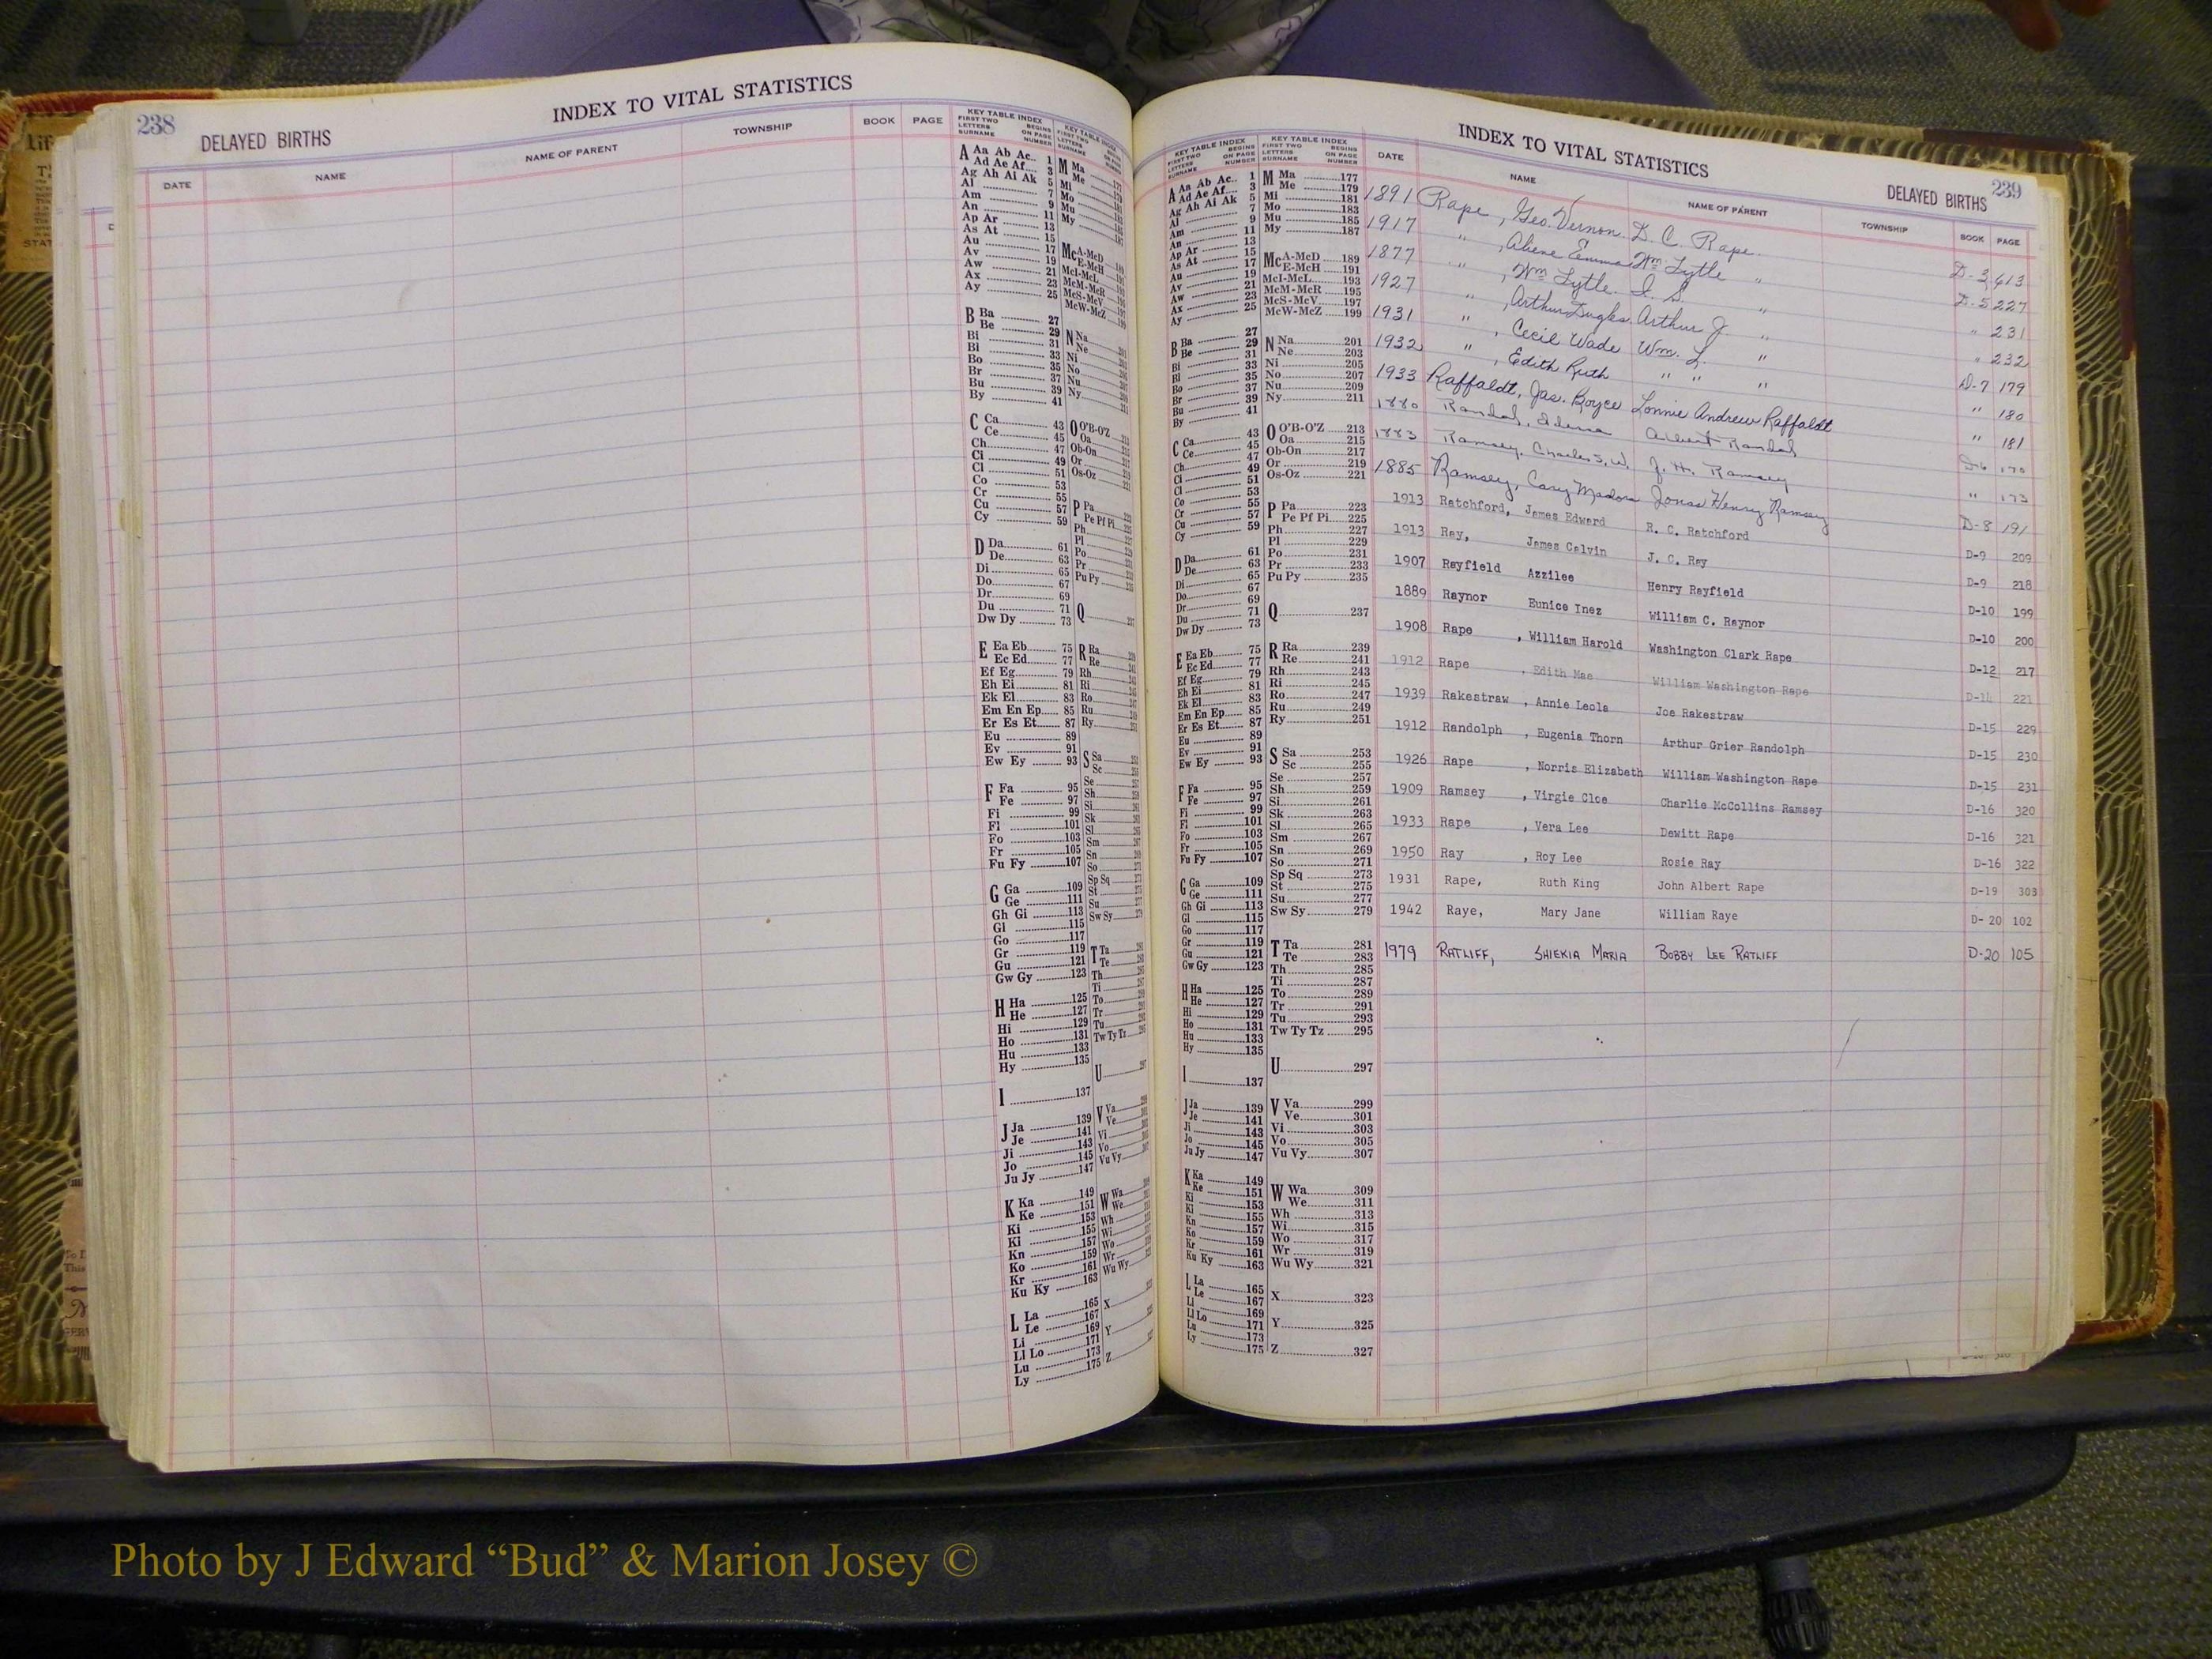 238
DELAYED BIRTHS
INDEX TO VITAL STATISTICS
DATE NAME NAME OF PARENT TOWNSHIP BOOK PAGE
KEY TABLE INDEX
FIRST TWO LETTERS SURNAME BEGINS ON PAGE NUMBER
A Aa Ab Ac 1
Ad Ae Af 3
Ag Ah Ai Ak 5
Al 7
Am 9
An 11
Ap Ar 13
As At 15
Au 17
Av 19
Aw 21
Ax 23
Ay 25
B Ba 27
Be 29
Bi 31
Bl 33
Bo 35
Br 37
Bu 39
By 41
C Ca 43
Ce 45
Ch 47
Ci 49
Cl 51
Co 53
Cr 55
Cu 57
Cy 59
D Da 61
De 63
Di 65
Do 67
Dr 69
Du 71
Dw Dy 73
E Ea Eb 75
Ec Ed 77
Ef Eg 79
Eh Ei 81
Ek El 83
Em En Ep 85
Er Es Et 87
Eu 89
Ev 91
Ew Ey 93
F Fa 95
Fe 97
Fi 99
Fl 101
Fo 103
Fr 105
Fu Fy 107
G Ga 109
Ge 111
Gh Gi 113
Gl 115
Go 117
Gr 119
Gu 121
Gw Gy 123
H Ha 125
He 127
Hi 129
Ho 131
Hu 133
Hy 135
I 137
J Ja 139
Je 141
Ji 143
Jo 145
Ju Jy 147
K Ka 149
Ke 151
Ki 153
Kn 157
Ko 159
Kr 161
Ku Ky 163
L La 165
Le 167
Li 169
Ll Lo 171
Lu 173
Ly 175
INDEX TO VITAL STATISTICS
DELAYED BIRTHS
239
KEY TABLE INDEX
FIRST TWO LETTERS SURNAME BEGINS ON PAGE NUMBER
M Ma 177
Me 179
Mi 181
Mo 183
Mu 185
My 187
Mc A-McD 189
E-McH 191
McI-McL 193
McM-McR 195
McS-McV 197
McW-McZ 199
N Na 201
Ne 203
Ni 205
No 207
Nu 209
Ny 211
O O'B-O'Z 213
Oa 215
Ob-On 217
Or 219
Os-Oz 221
P Pa 223
Pe Pf Pi 225
Ph 227
Pl 229
Po 231
Pr 233
Pu Py 235
Q 237
R Ra 239
Re 241
Rh 243
Ri 245
Ro 247
Ru 249
Ry 251
S Sa 253
Sc 255
Se 257
Sh 259
Si 261
Sk 263
Sl 265
Sm 267
Sn 269
So 271
Sp Sq 273
St 275
Su 277
Sw Sy 279
T Ta 281
Te 283
Th 285
Ti 287
To 289
Tr 291
Tu 293
Tw Ty Tz 295
U 297
V Va 299
Ve 301
Vi 303
Vo 305
Vu Vy 307
W Wa 309
We 311
Wh 313
Wi 315
Wo 317
Wr 319
Wu Wy 321
X 323
Y 325
Z 327
DATE NAME NAME OF PARENT TOWNSHIP BOOK PAGE
1891 Rape, Geo. Vernon D. C. Rape D-3 613
1917 " , Emma Wm Lytle " D-5 227
1877 " , Wm Lytle " " 231
1927 " , Arthur Arthur J. " " 232
1931 " , Cecil Wade Wm. L. " D-7 179
1932 " , Edith Ruth " " " " 180
1933 Raffaldt, Jas. Boyce Lonnie Andrew Raffaldt " 181
1880 Randal, Albert Randal D-6 170
1883 Ramsey, Charles S. W. J. H. Ramsey " 173
1885 Ramsey, Cary Madora Jonas Henry Ramsey D-8 191
1913 Ratchford, James Edward R. C. Ratchford D-9 209
1913 Ray, James Calvin J. C. Ray D-9 218
1907 Rayfield Azzilee Henry Rayfield D-10 199
1889 Raynor Eunice Inez William C. Raynor D-10 200
1908 Rape , William Harold Washington Clark Rape D-12 217
1912 Rape , Edith Mae William Washington Rape 221
1939 Rakestraw , Annie Leola Joe Rakestraw D-15 229
1912 Randolph , Eugenia Thorn Arthur Grier Randolph D-15 230
1926 Rape , Norris Elizabeth William Washington Rape D-15 231
1909 Ramsey , Virgie Cloe Charlie McCollins Ramsey D-16 320
1933 Rape , Vera Lee Dewitt Rape D-16 321
1950 Ray , Roy Lee Rosie Ray D-16 322
1931 Rape, Ruth King John Albert Rape D-19 303
1942 Raye, Mary Jane William Raye D-20 102
1979 RATLIFF, SHIEKIA MARIA BOBBY LEE RATLIFF D-20 105
Photo by J Edward “Bud” & Marion Josey ©